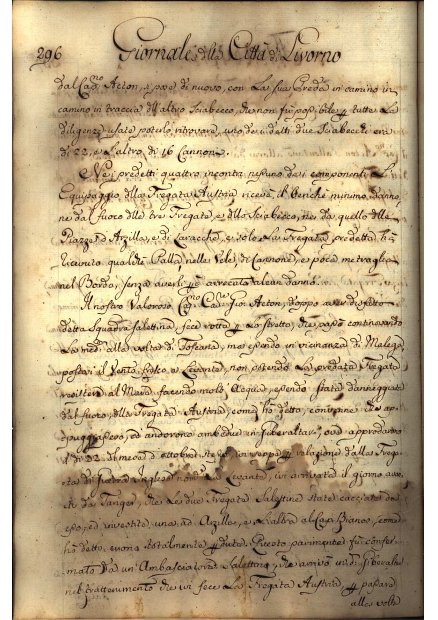 296 Giornale della Città di Livorno
dal Cap.no Acton, e pose di nuovo, con la sua Preda in camino in
camino in traccia dell'altro Sciabecco, che non fu possibile tutte le
diligenze usate poterlo ritrovare, uno dei detti due Sciabecchi era
di 22, e l'altro di 16 Cannoni.
Nei predetti quattro incontri nessuno dei componenti l'
Equipaggio della Fregata Austria riceve il benchè minimo danno,
ne dal fuoco delle tre Fregate, e dello Sciabecco, ne da quello delle
Piazze d'Arzilla, e di Laracce, e solo la Fregata predetta ha
ricevuto qualche Palla nelle Vele, di Cannone, e poca metraglia
nel Bordo, senza averli arrecato alcun danno.
Il nostro Valoroso Cap.no Cav. Gio: Acton, doppo aver disfatto
detta Squadra Salettina, fece rotta lo stretto, che passò continuando
la alla volta di Toscana, ma essendo in vicinanza di Malega
postasi il Vento fresco a Levante, non potendo la predata Fregata
resistere al Mare facendo molt' Acqua, essendo stata danneggiata
dal fuoco della Fregata Austria, come ho detto, convenne
poggiassero, ed andorono ambedue in Gibralta, ove approdarono
il dì 22 del mese d'ottobre relazione della Frega-
ta di Guerra Inglese nom. Levante, ivi arrivata il giorno avan-
ti da Tanger, che le due Fregate Salettine state cacciate da
esso, ed investite, una ad Arzilla, e l'altra al Cap Bianco, come
ho detto, erano totalmente perdute. Questo parimente fu confer-
mato da un' Ambasciatore Salettino, che arrivò in Gibralta
nel trattenimento che ivi fece la Fregata Austria passare
alla volta